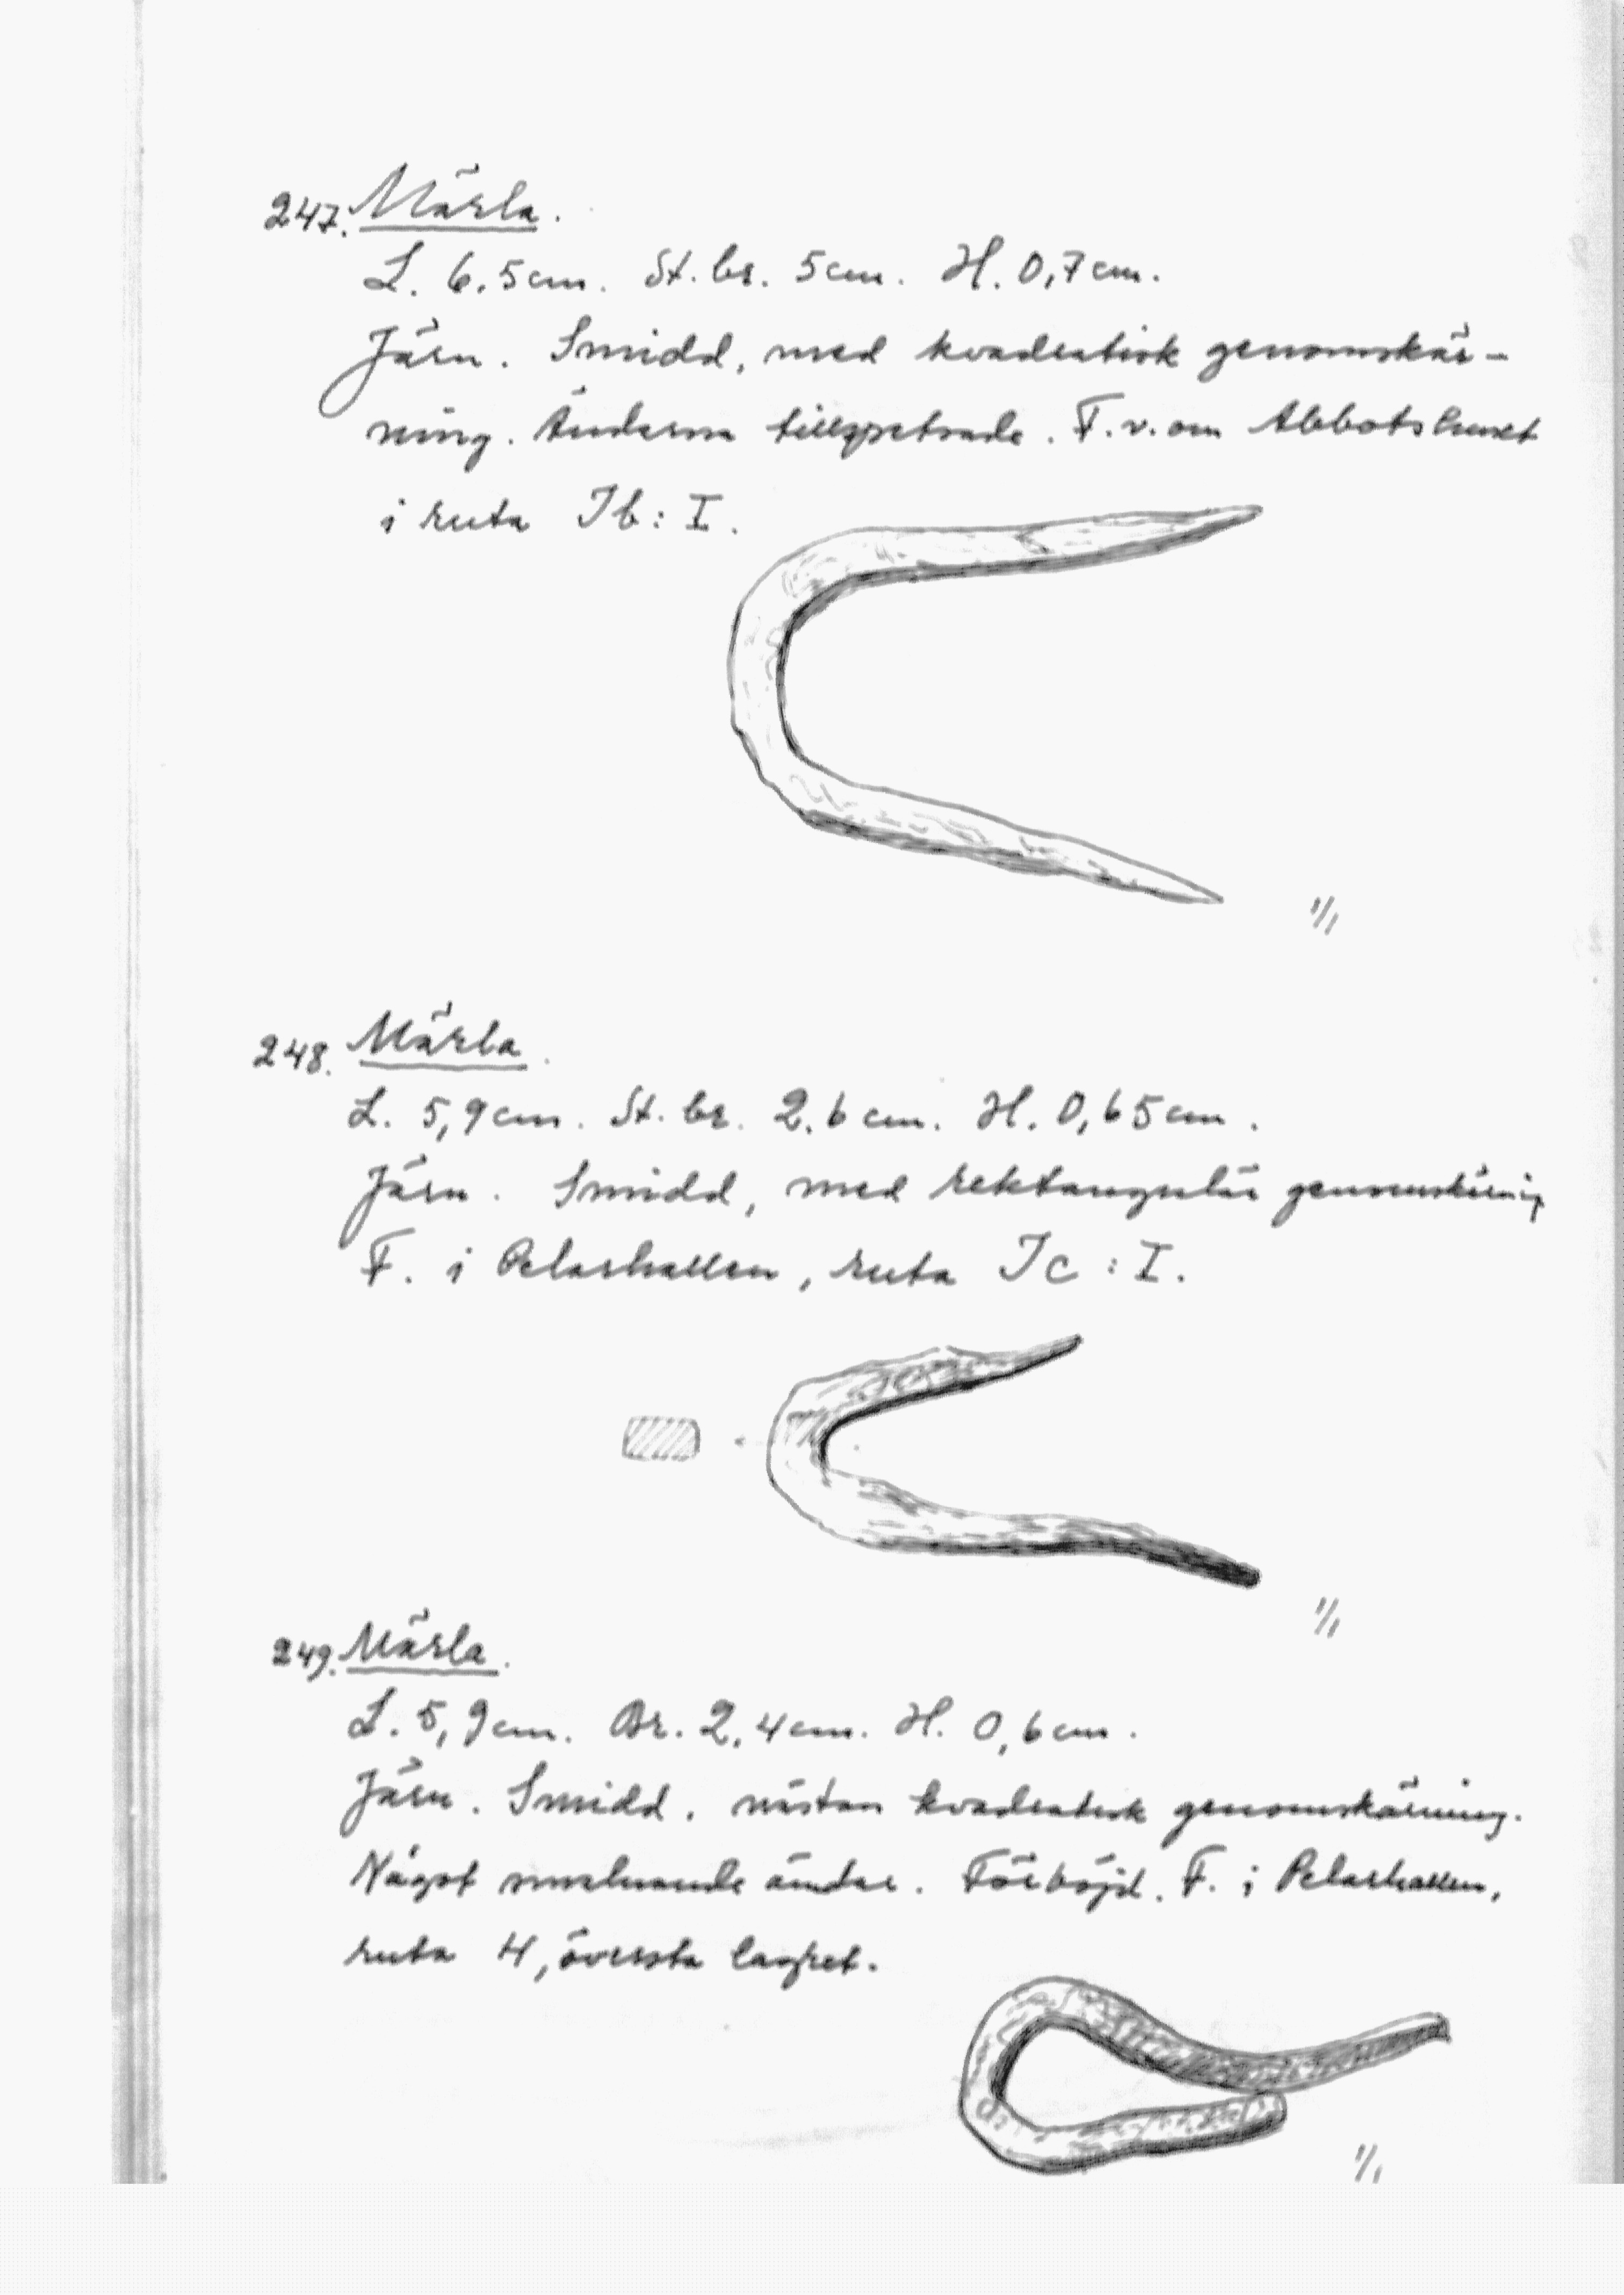 247. Märla.
L. 6,5cm. St. br. 5cm. H. 0,7cm.
Järn. Smidd, med kvadratisk genomskär-
ning. Ändarna tillspetsade. F. v. om Abbotshuset
i ruta Ib: I.
1/1
248. Märla.
L. 5,9cm. St. br. 2,6cm. H. 0,65cm.
Järn. Smidd, med rektangulär genomskärning
F. i Pelarhallen, ruta Ic: I.
1/1
249. Märla.
L. 5,9cm. Br. 2,4cm. H. 0,6cm.
Järn. Smidd, nästan kvadratisk genomskärning.
Något smalnande ändar. Förböjd. F. i Pelarhallen,
ruta 4, översta lagret.
1/1